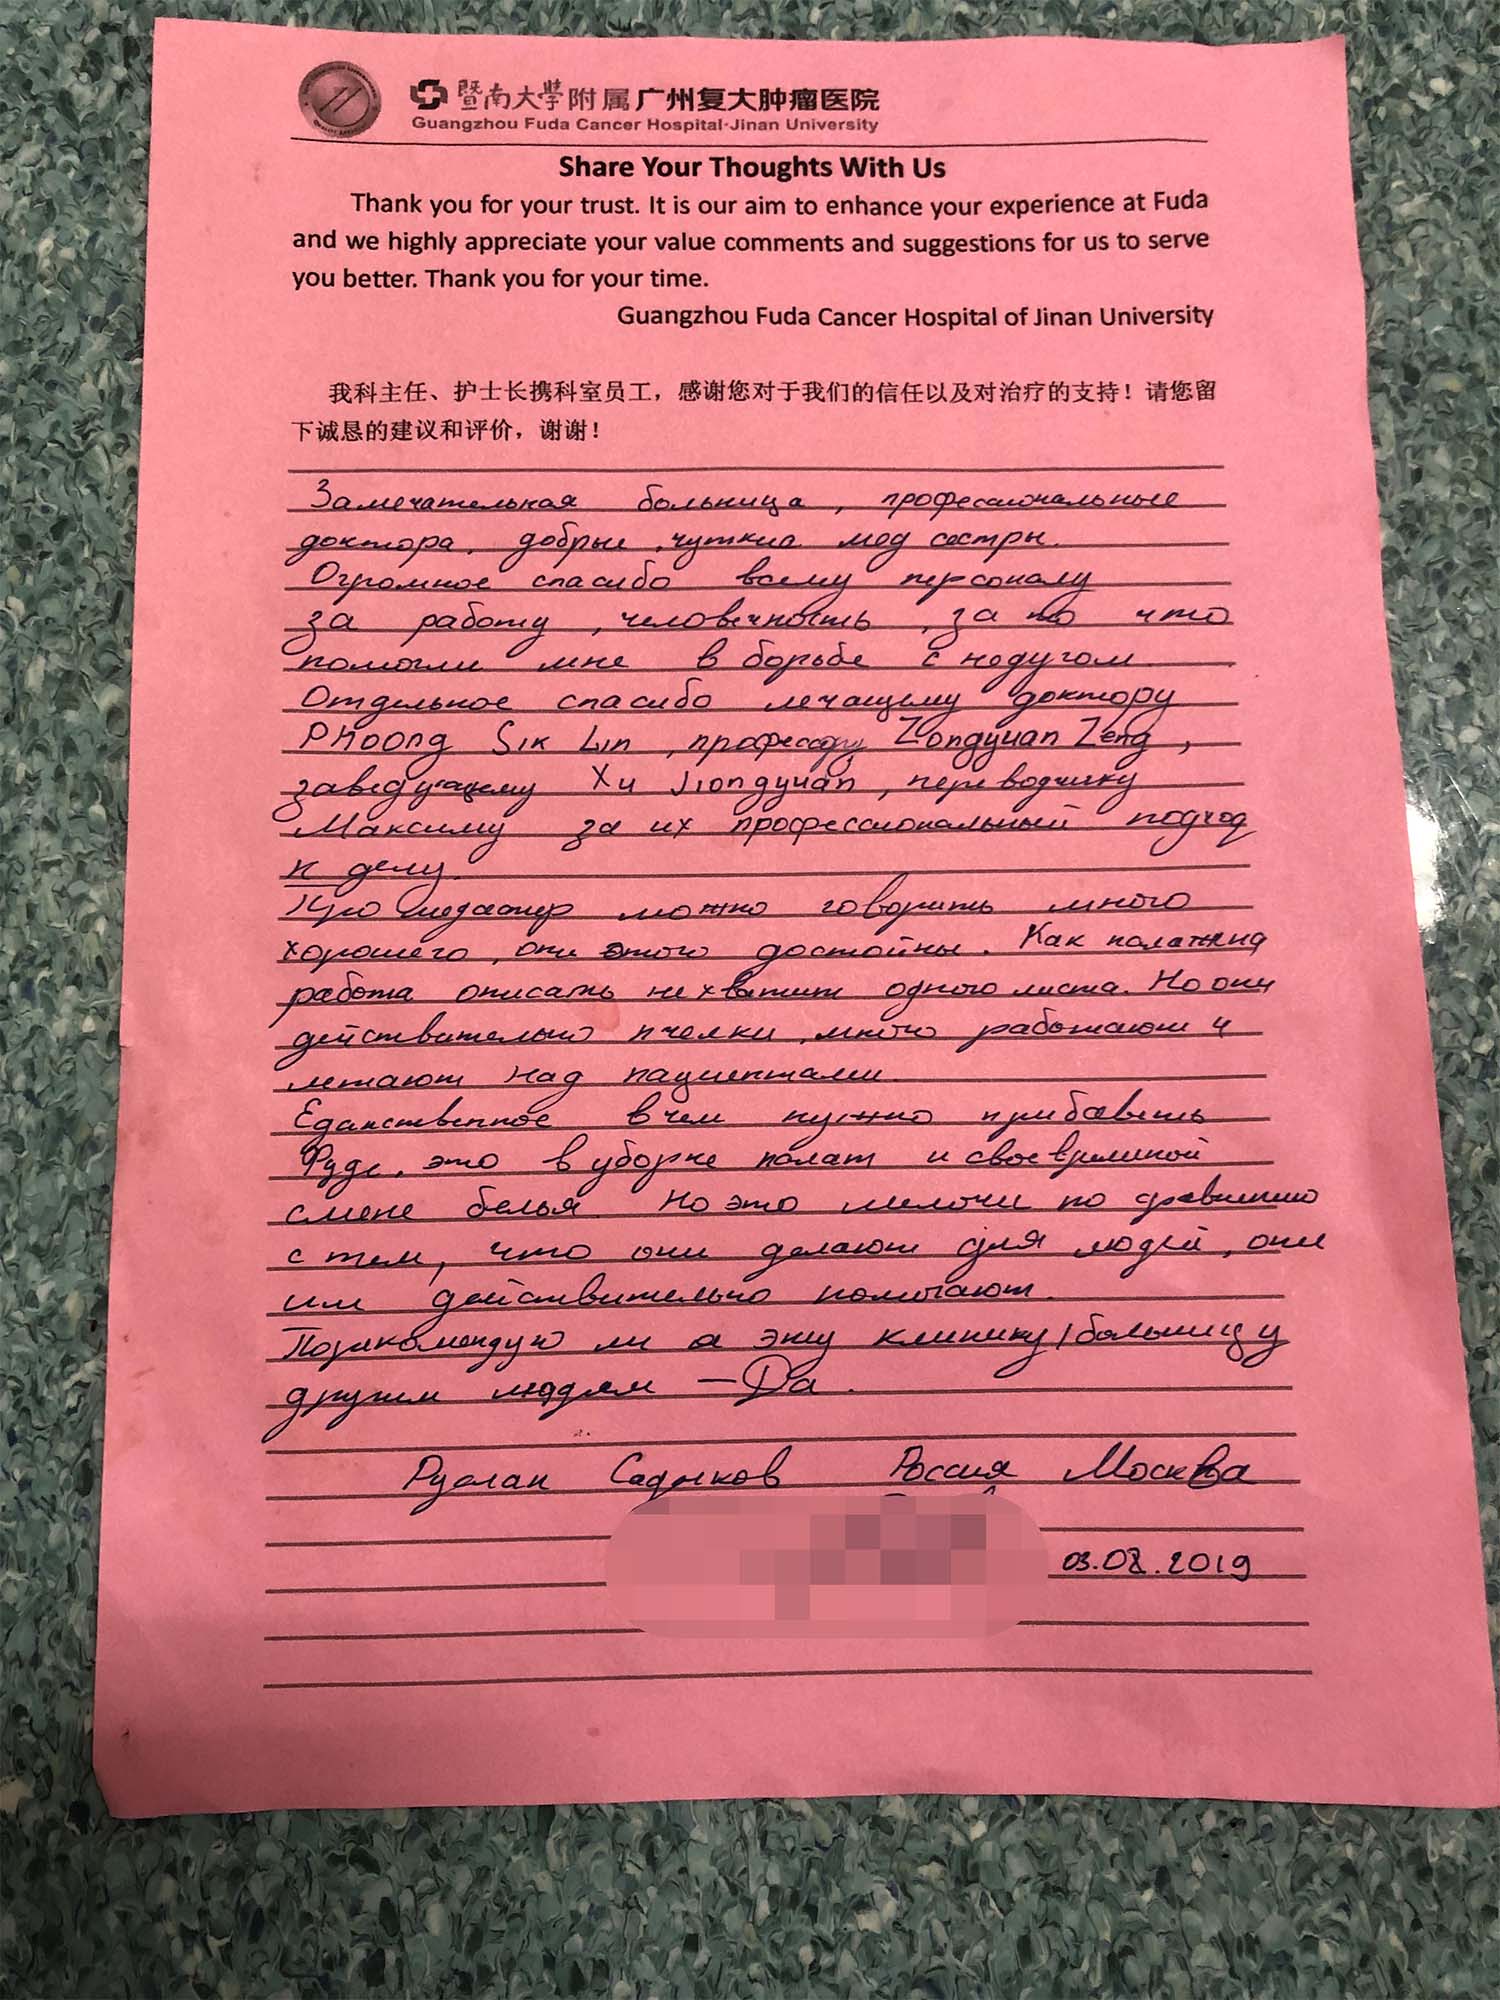 暨南大学附属广州复大肿瘤医院
Guangzhou Fuda Cancer Hospital·Jinan University
Share Your Thoughts With Us
Thank you for your trust. It is our aim to enhance your experience at Fuda
and we highly appreciate your value comments and suggestions for us to serve
you better. Thank you for your time.
Guangzhou Fuda Cancer Hospital of Jinan University
我科主任、护士长携科室员工，感谢您对于我们的信任以及对治疗的支持！请您留
下诚恳的建议和评价，谢谢！
Замечательная больница, профессиональные
доктора, добрые, чуткиа мед сестры.
Огромное спасибо всему персоналу
за работу, человечность, за то что
помогли мне в борьбе с недугом.
Отдельное спасибо лечащему доктору
Phoong Sik Lin, профессору Zongyuan Zeng,
заведующему Xu Jiongyuan, переводчику
Максиму за их профессиональный подход
к делу.
Про медсестер можно говорить много
хорошего, они этого достойны. Как
работа описать не хватит одного листа. Но они
действительно пчелки, много работают и
летают над пациентами.
Единственное в чем нужно прибавить
Фуде, это в уборке палат и своевременой
смене белья. Но это мелочи по сравнению
с тем, что они делают для людей, они
им действительно помогают.
Порекомендую ли я эту клинику/больницу
другим людям – Да.
Руслан Садыков Россия Москва
03.08.2019